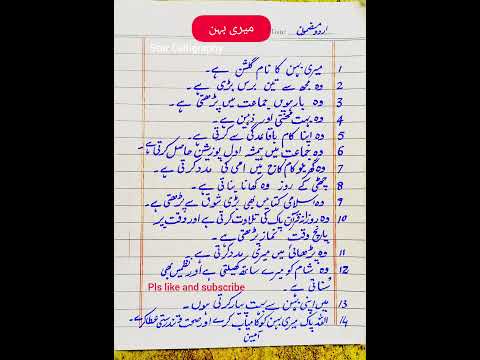 اردو مضمون
Date:
میری بہن
Star Calligraphy
1 میری بہن کا نام گلشن ہے۔
2 وہ مجھ سے تین برس بڑی ہے۔
3 وہ بارہویں جماعت میں پڑھتی ہے۔
4 وہ بہت محنتی اور ذہین ہے۔
5 وہ اپنا کام باقاعدگی سے کرتی ہے۔
6 وہ جماعت میں ہمیشہ اول پوزیشن حاصل کرتی ہے۔
7 وہ گھریلو کام کاج میں امی کی مدد کرتی ہے۔
8 چھٹی کے روز وہ کھانا بناتی ہے۔
9 وہ اسلامی کتابیں بھی بڑی شوق سے پڑھتی ہے۔
10 وہ روزانہ قرآن پاک کی تلاوت کرتی ہے اور وقت پر
پانچ وقت نماز پڑھتی ہے۔
11 وہ پڑھائی میں میری مدد کرتی ہے۔
12 وہ شام کو میرے ساتھ کھیلتی ہے اور نظمیں بھی
سناتی ہے۔
Pls like and subscribe
13 میں اپنی بہن سے بہت پیار کرتی ہوں۔
14 اللہ پاک میری بہن کو کامیاب کرے اور صحت و تندرستی عطا کرے۔
آمین